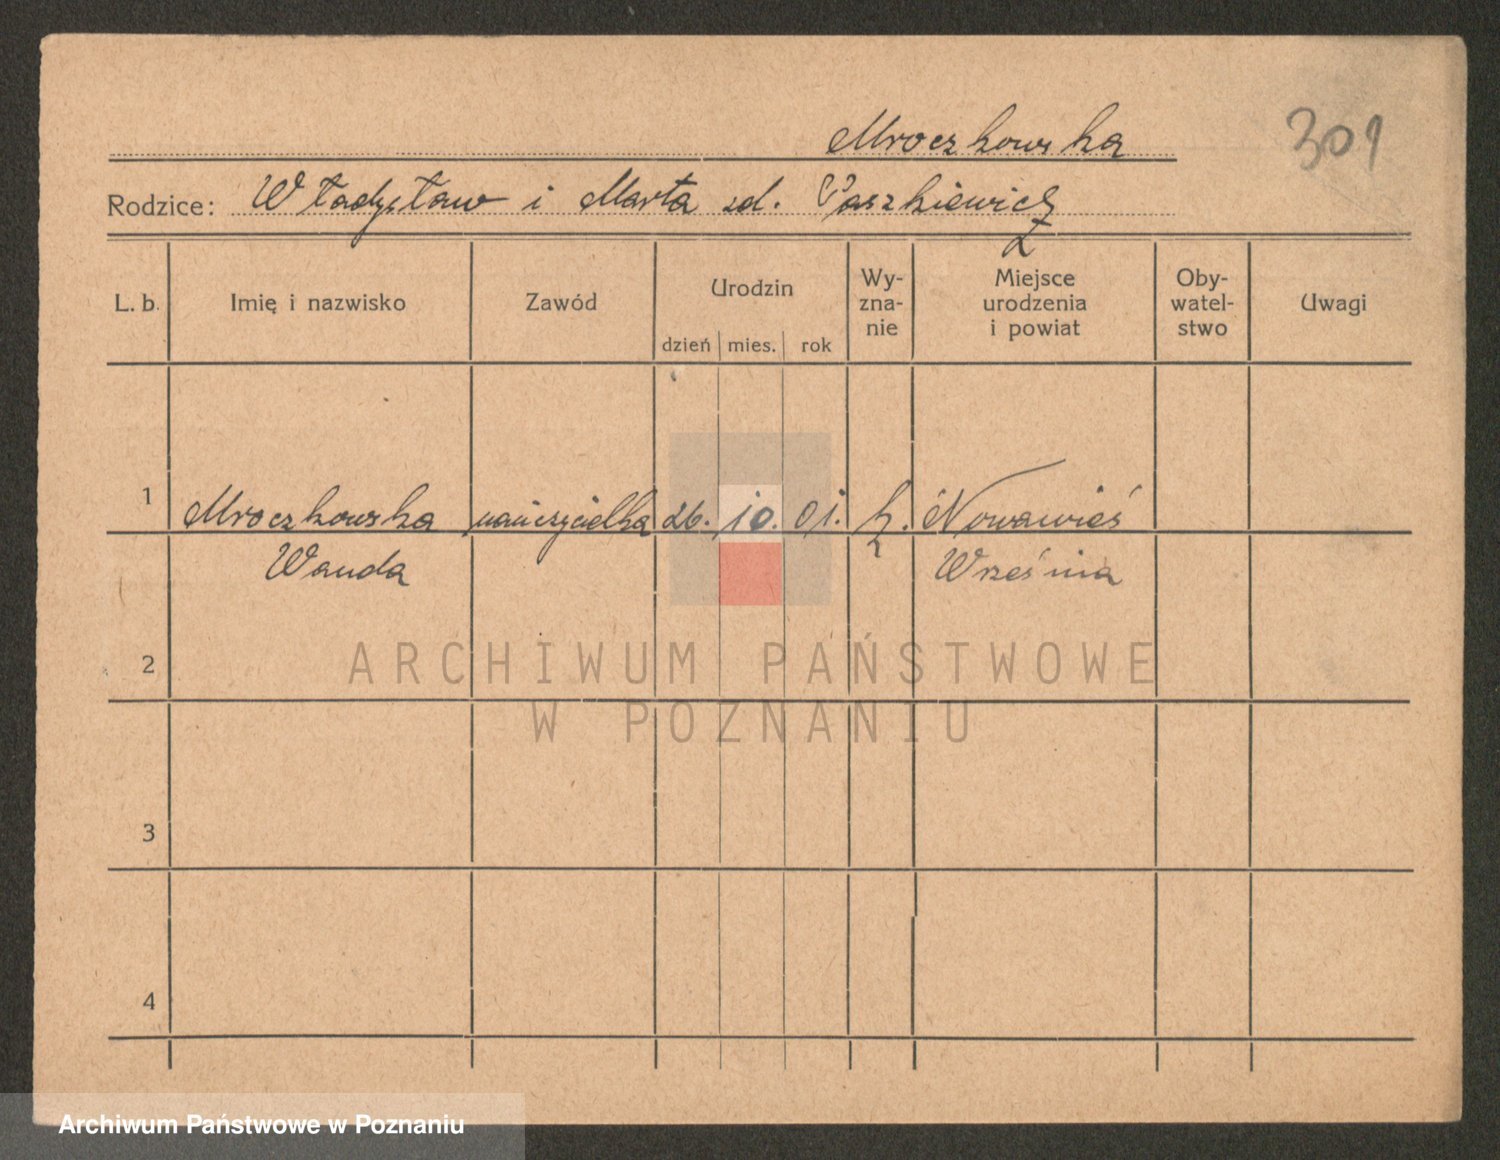 Mroczkowska 301
Rodzice: Władysław i Marta zd. Paszkiewicz
L. b. Imię i nazwisko Zawód Urodzin Wy-zna-nie Miejsce urodzenia i powiat Oby-watel-stwo Uwagi
dzień mies. rok
1 Mroczkowska nauczycielka 26. 10. 01. k. Nowawieś
Wanda Września
2
ARCHIWUM PAŃSTWOWE
W POZNANIU
3
4
Archiwum Państwowe w Poznaniu